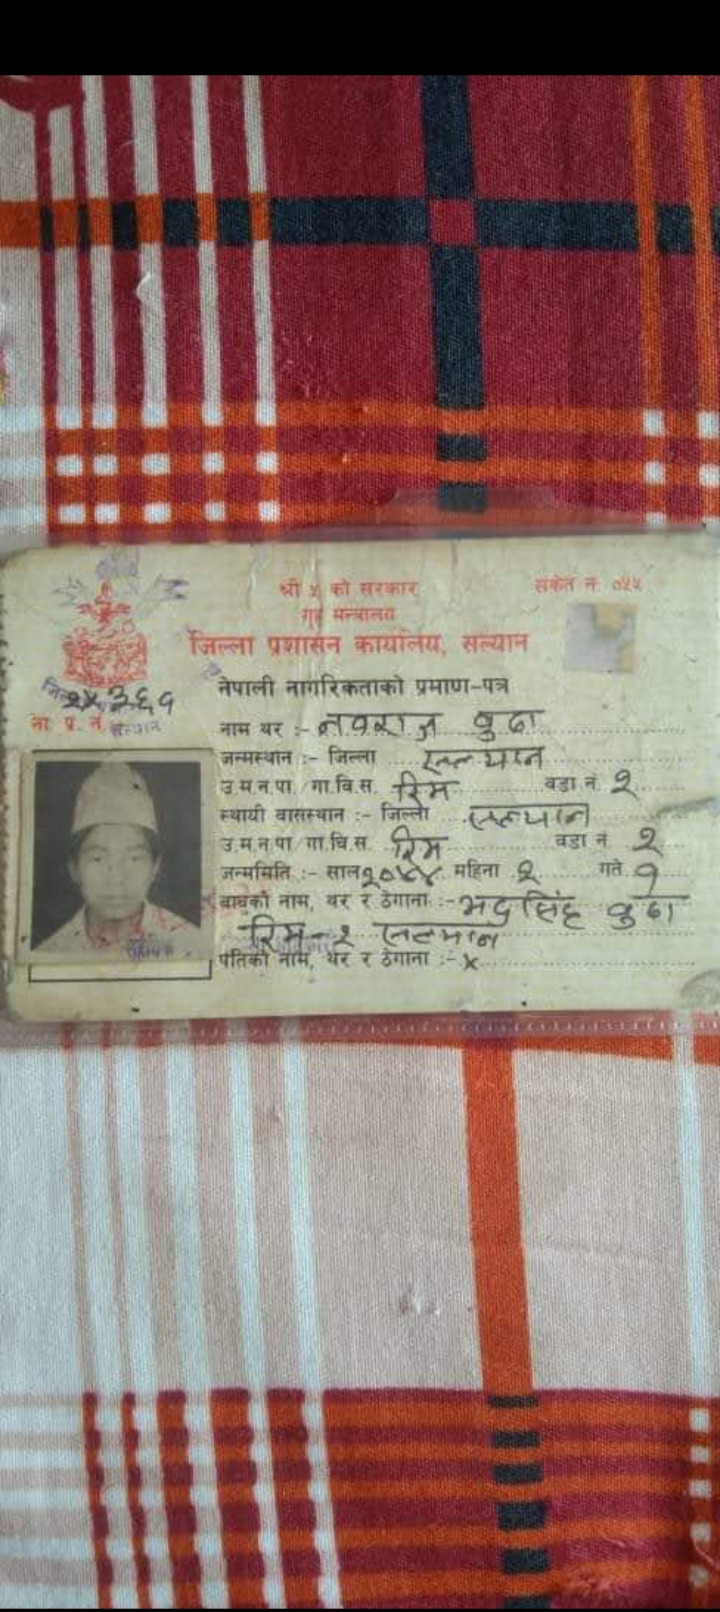 श्री ५ को सरकार
सकेत नं. ०५५
गृह मन्त्रालय
जिल्ला प्रशासन कार्यालय, सल्यान
नेपाली नागरिकताको प्रमाण-पत्र
ना. प्र. नं.
नाम थर :- नवराज वुढा
जन्मस्थान :- जिल्ला सल्यान
उ.म.न.पा./गा.वि.स. रिम वडा नं. २
स्थायी वासस्थान :- जिल्ला सल्यान
उ.म.न.पा/गा.वि.स. रिम वडा नं २
जन्ममिति :- साल २०४४ महिना २ गते १
बाबुको नाम, थर र ठेगाना :- भद्रसिंह वुढा
रिम-२ सल्यान
पतिको नाम, थर र ठेगाना :- x